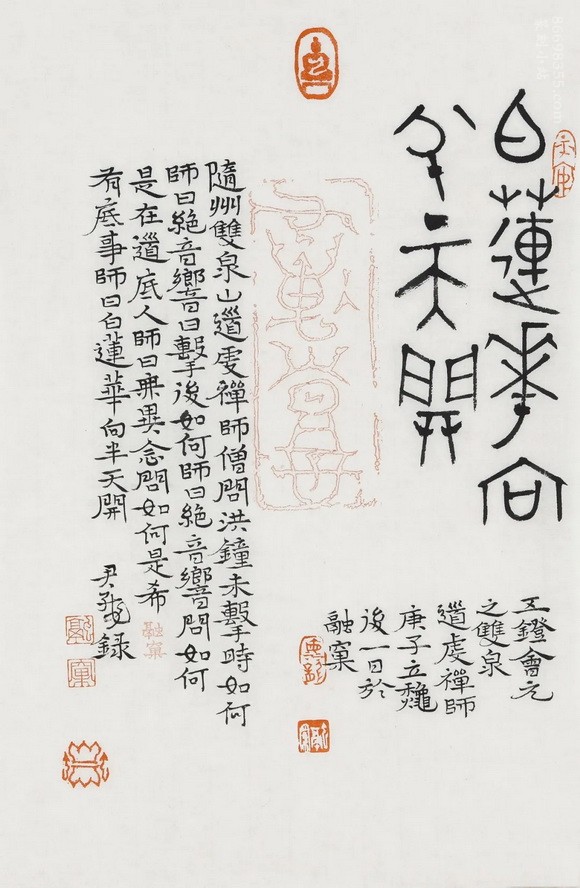 白蓮華向
半天開
五鐙會元
之雙泉
道虔禪師
庚子立龝
後一日於
融窠
隨州雙泉山道虔禪師僧問洪鐘未擊時如何
師曰絕音響曰擊後如何師曰絕音響問如何
是在道底人師曰無異念問如何是希
有底事師曰白蓮華向半天開
尹 錄
融窠